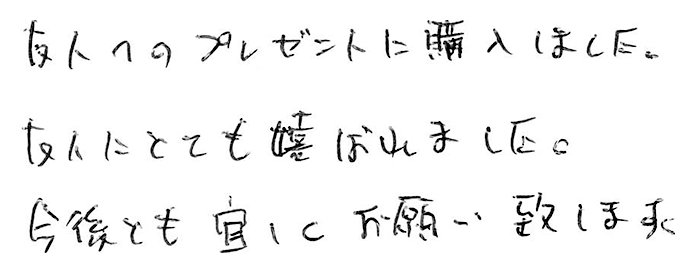 友人へのプレゼントに購入しました。
友人にとても嬉ばれました。
今後とも宜しくお願い致します